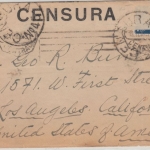 CENSURA
Geo R Burn
1871 W. First Street
Los Angeles Califor
United States of Am